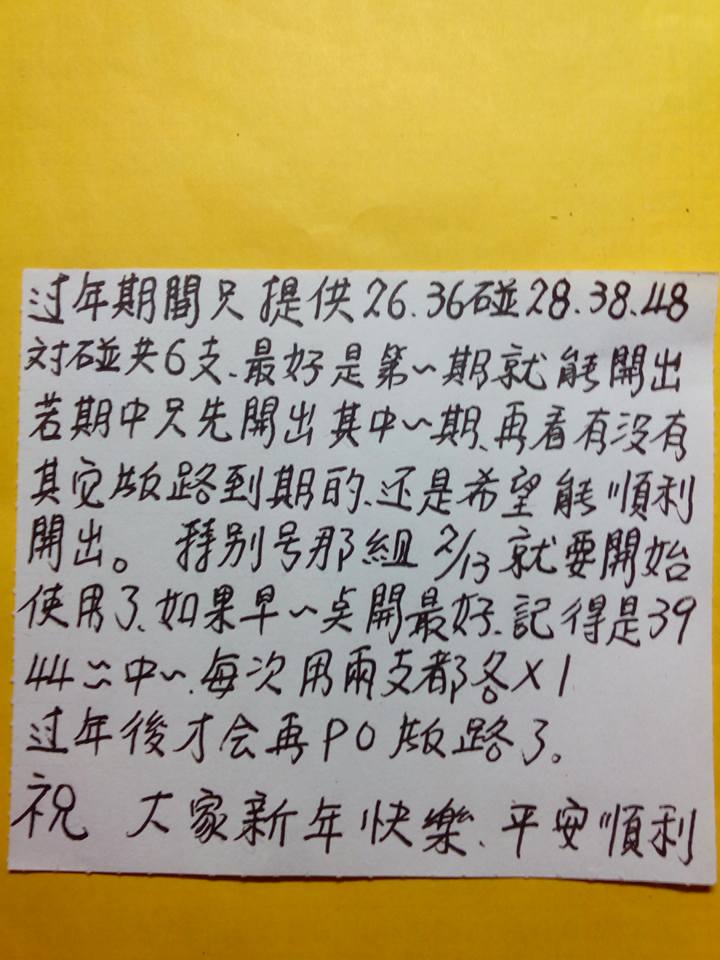 过年期間只提供26.36碰28.38.48
対碰共6支、最好是第~期就能開出
若期中只先開出其中~期、再看有没有
其它版路到期的、还是希望能順利
開出。 特别号那組2/13就要開始
使用了、如果早~点開最好、記得是39
44二中~、每次用兩支都各×1
过年後才会再PO版路了。
祝 大家新年快樂、平安順利